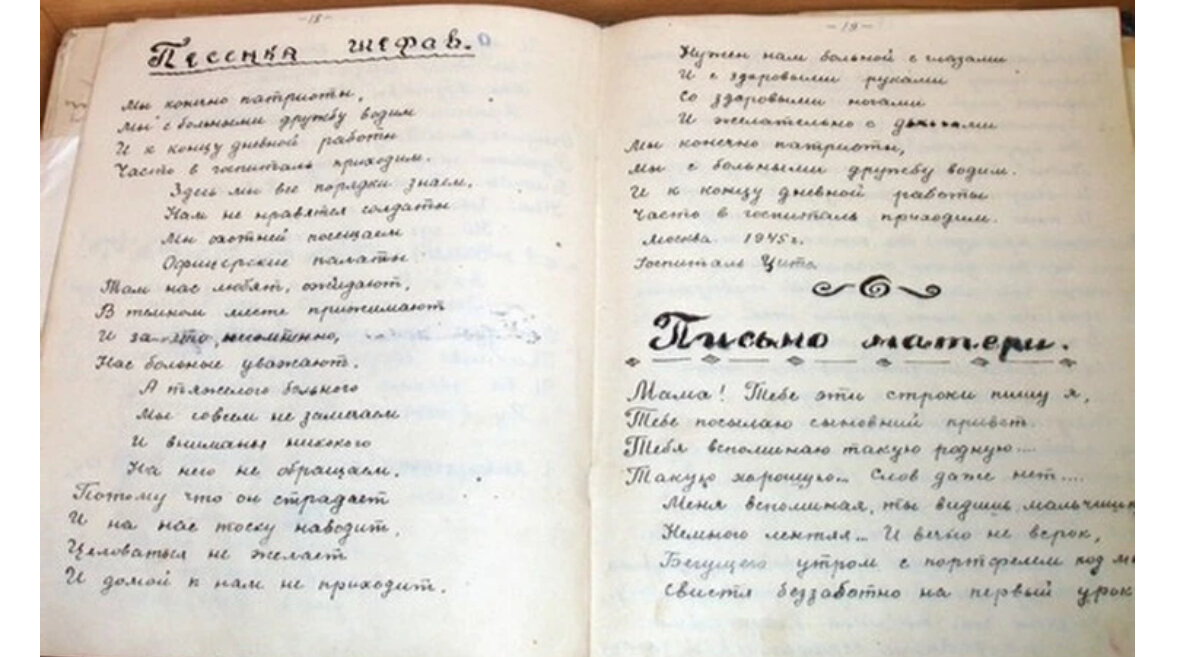 -18-
Песенка шефов.
Мы конечно патриоты,
Мы с больными дружбу водим
И к концу дневной работы
Часто в госпиталь приходим.
Здесь мы все порядки знаем,
Нам не нравятся солдаты
Мы охотней посещаем
Офицерские палаты
Там нас любят, ожидают,
В темном месте прижимают
И за это, несомненно,
Нас больные уважают.
А тяжелого больного
Мы совсем не замечаем
И вниманья никокого
На него не обращаем.
Потому что он страдает
И на нас тоску наводит,
Целоваться не желает
И домой к нам не приходит.
-19-
Нужен нам больной с глазами
И с здоровыми руками
Со здоровыми ногами
И желательно с деньгами
Мы конечно патриоты,
Мы с больными дружбу водим.
И к концу дневной работы
Часто в госпиталь приходим.
Москва 1945 г.
Госпиталь Цито
Письмо матери.
Мама! Тебе эти строки пишу я,
Тебе посылаю сыновний привет.
Тебя вспоминаю такую родную....
Такую хорошую... Слов даже нет....
Меня вспоминая, ты видишь мальчишк
Немного лентяя... И вечно не в срок,
Бегущего утром с портфелем под м
Свистя беззаботно на первый урок